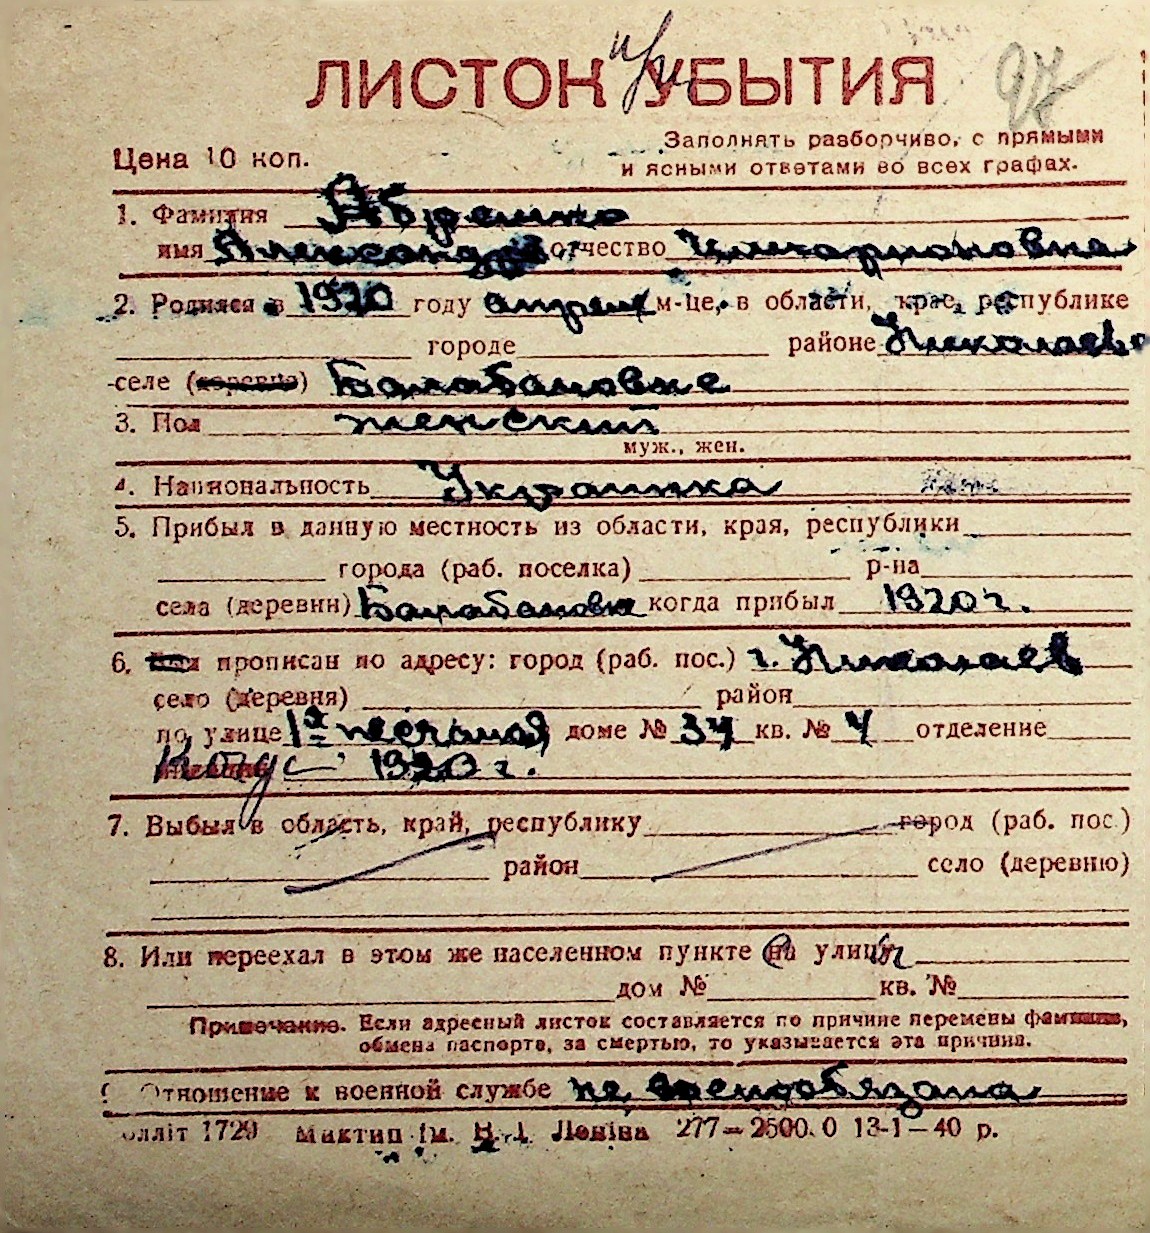 ЛИСТОК при УБЫТИЯ
Цена 10 коп.
Заполнять разборчиво, с прямыми
и ясными ответами во всех графах.
1. Фамилия Абрашко
имя Александра отчество Илларионовна
2. Родился в 1920 году апреле м-це, в области, крае, республике
городе районе Николаевс
селе (деревне) Балабановке
3. Пол женский
муж., жен.
4. Национальность Украинка
5. Прибыл в данную местность из области, края, республики
города (раб. поселка) р-на
села (деревни) Балабановки когда прибыл 1920 г.
6. прописан по адресу: город (раб. пос.) г. Николаев
село (деревня) район
по улице 1я песчаная доме № 34 кв. № 4 отделение
1920 г.
7. Выбыл в область, край, республику город (раб. пос.)
район село (деревню)
8. Или переехал в этом же населенном пункте на улицу
дом № кв. №
Примечание. Если адресный листок составляется по причине перемены фамилии,
обмена паспорта, за смертью, то указывается эта причина.
Отношение к военной службе не военнообязана
олліт 1729 Миктип ім. В. І. Леніна 277—2500.0 13-1—40 р.